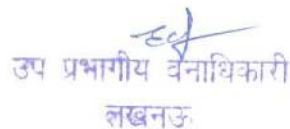 उप प्रभागीय वनाधिकारी
लखनऊ